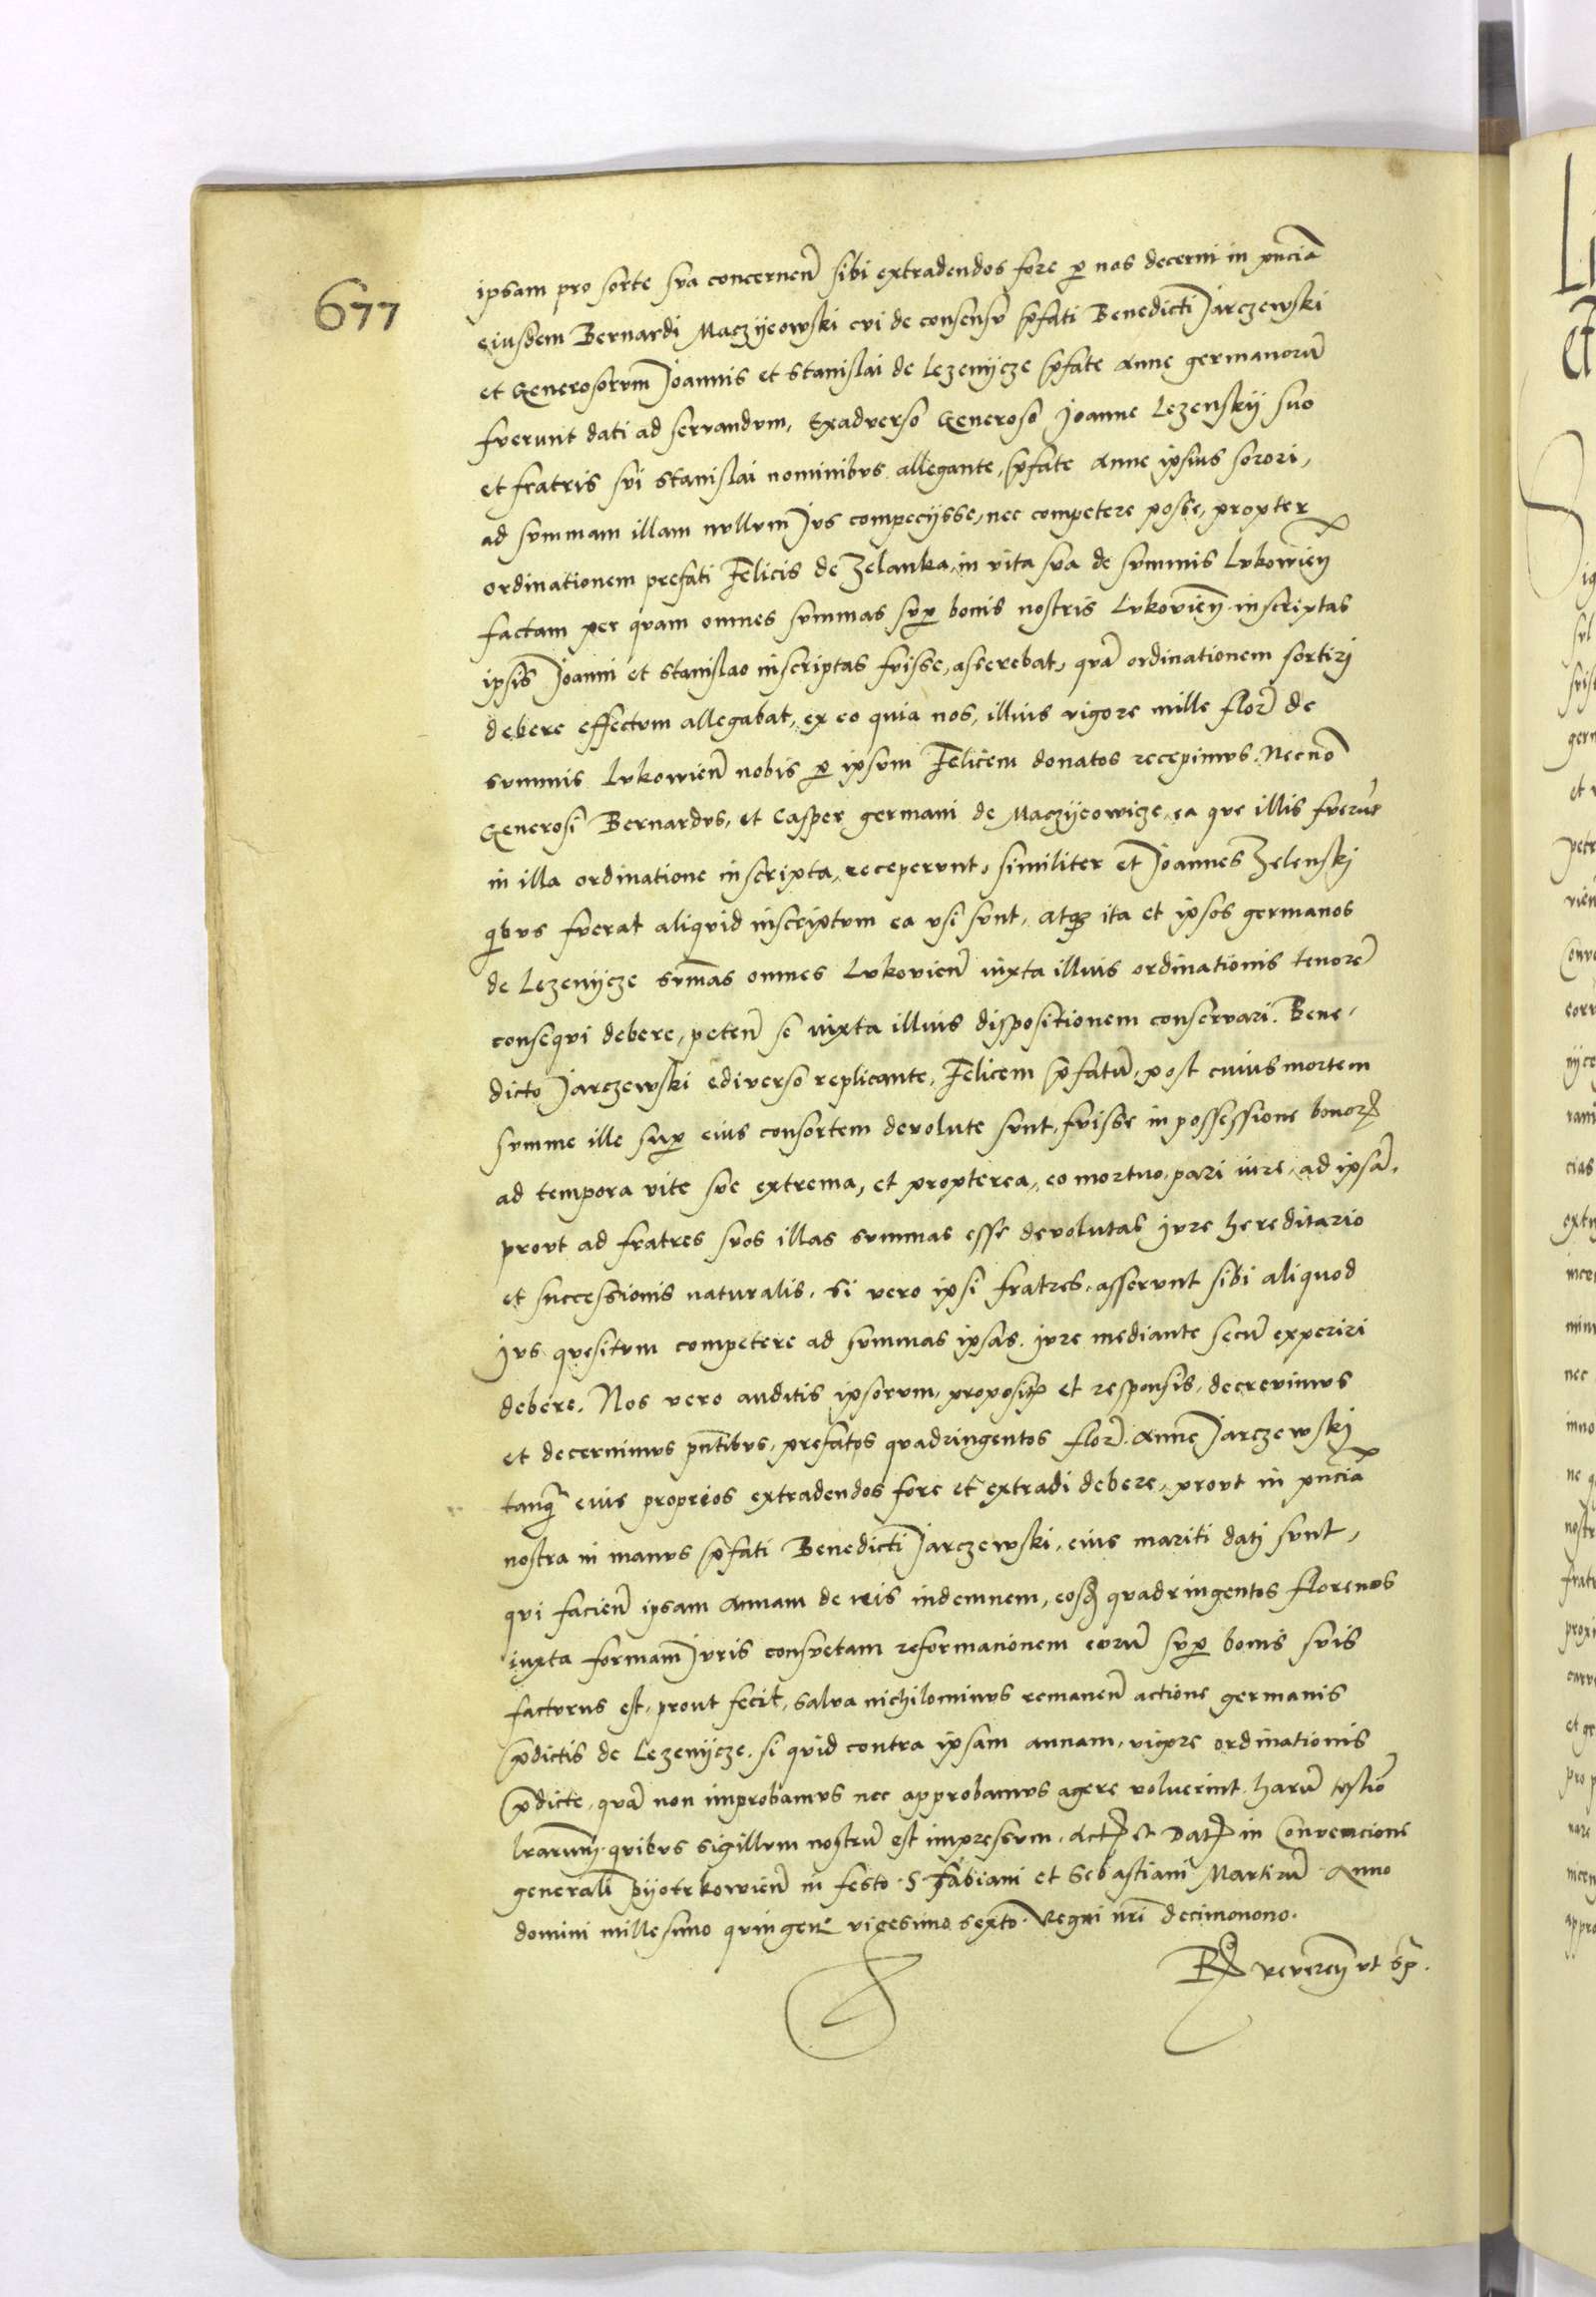 677
ipsam pro sorte sua concernen̄ sibi extradendos fore ꝑ nos decerni in pn̄cia
eiusdem Bernardi Maczijeowski cui de consensu p̄fati Benedicti Jarczewski
et Generosorum Joannis et Stanislai de Lezenijcze p̄fate Anne germanorū
fuerunt dati ad seruandum, Exaduerso Generoso Joanne Lezenskij suo
et fratris sui Stanislai nominibus allegante, p̄fate Anne ipsius sorori,
ad summam illam nullum Jus compecijsse, nec competere posse, propter
ordinationem prefati Felicis de Zelanka, in vita sua de summis Lukowien̄
factam per quam omnes summas suꝑ bonis nostris Lukowien̄ inscriptas
ipsis Joanni et Stanislao inscriptas fuisse, asserebat, quā ordinationem sortiri
debere effectum allegabat, ex eo quia nos, illius vigore mille florē de
summis Lukowien̄ nobis ꝑ ipsum Felicem donatos recepimus. Necnō
Generosi Bernardus, et Casper germani de Maczijeowicze, ea que illis fuerūt
in illa ordinatione inscripta, receperunt, similiter et Joannes Zelenskj
q̄bus fuerat aliquid inscriptum ea usi sunt, atqꝫ ita et ipsos germanos
de Lezenijcze sūmas omnes Lukowien̄ iuxta illius ordinationis tenorē
consequi debere, peten̄ se iuxta illius dispositionem conservari. Bene-
dicto Jarczewski ediverso replicante, Felicem p̄fatū, post cuius mortem
summe ille suꝑ eius consortem devolute sunt, fuisse in possessione bonorꝝ
ad tempora vite sue extrema, et propterea, eo mortuo, pari iure, ad ipsā,
prout ad fratres suos illas summas esse devolutas jure hereditario
et successionis naturalis, si vero ipsi fratres, asserunt sibi aliquod
jus quesitum competere ad summas ipsas, jure mediante secū experiri
debere. Nos vero auditis ipsorum, propositꝭ et responsis, decrevimus
et decernimus pn̄tibus, prefatos quadringentos florē Anne Jarczewskj
tanq̄ eius proprios extradendos fore et extradi debere, prout in pn̄cia
nostra in manus p̄fati Benedicti Jarczewski, eius mariti datj sunt,
qui facien̄ ipsam Annam de eis indemnem, eosꝫ quadringentos florenos
iuxta formam Juris consuetam reformacionem eorū suꝑ bonis suis
facturus est, prout fecit, salva nichilominus remanen̄ actione germanis
p̄dictis de Lezenijcze, si quid contra ipsam Annam, vigore ordinationis
p̄dicte, quā non improbamus nec approbamus agere voluerint, harū testio
lrārum quibus sigillum nostrū est impressum. Actꝫ et Datꝫ in Convencione
generali Pijotrkowien̄ in festo S Fabiani et Sebastiani Martirū Anno
domini millesimo quingen̄ vigesimo sexto. Regni nr̄i decimonono.
Rꝫ reveren̄ ut sp̄.